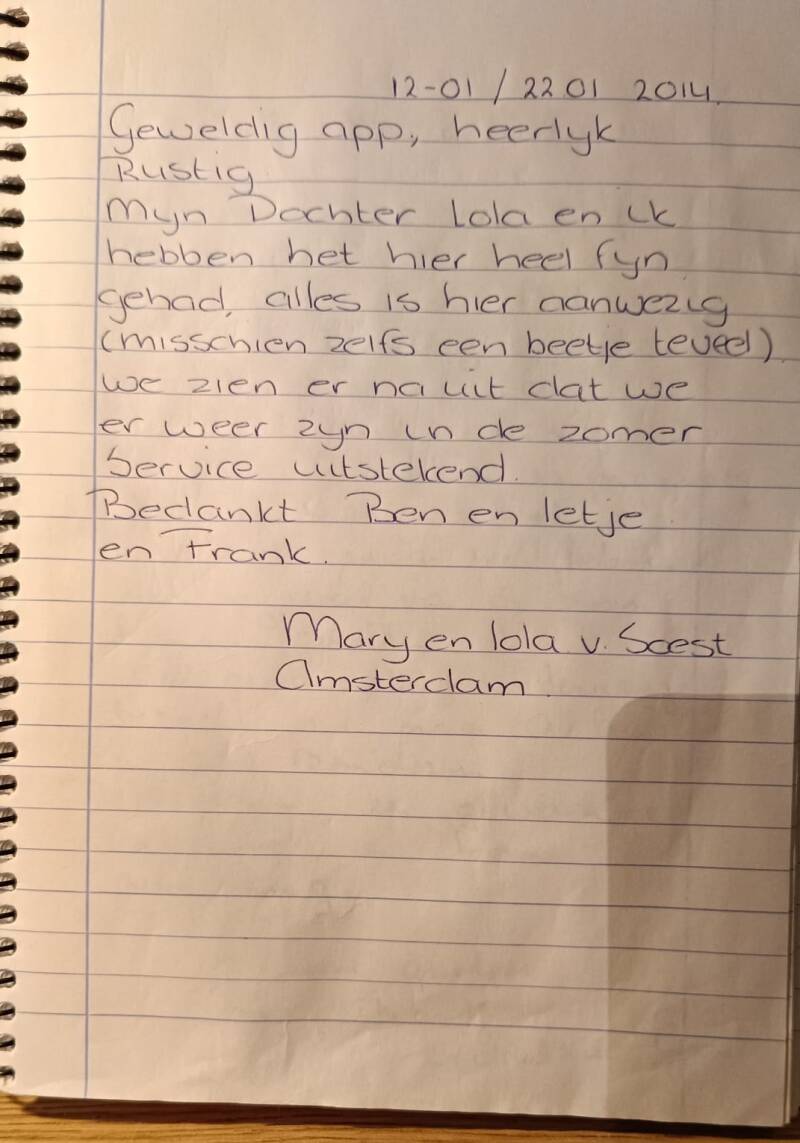 12-01 / 22 01 2014.
Geweldig app, heerlyk
Rustig
Myn Dochter Lola en ik
hebben het hier heel fyn
gehad, alles is hier aanwezig
(misschien zelfs een beetje teveel)
we zien er na uit dat we
er weer zyn in de zomer
Service uitstekend.
Bedankt Ben en Ietje
en Frank.
Mary en lola v. Soest
Amsterdam.